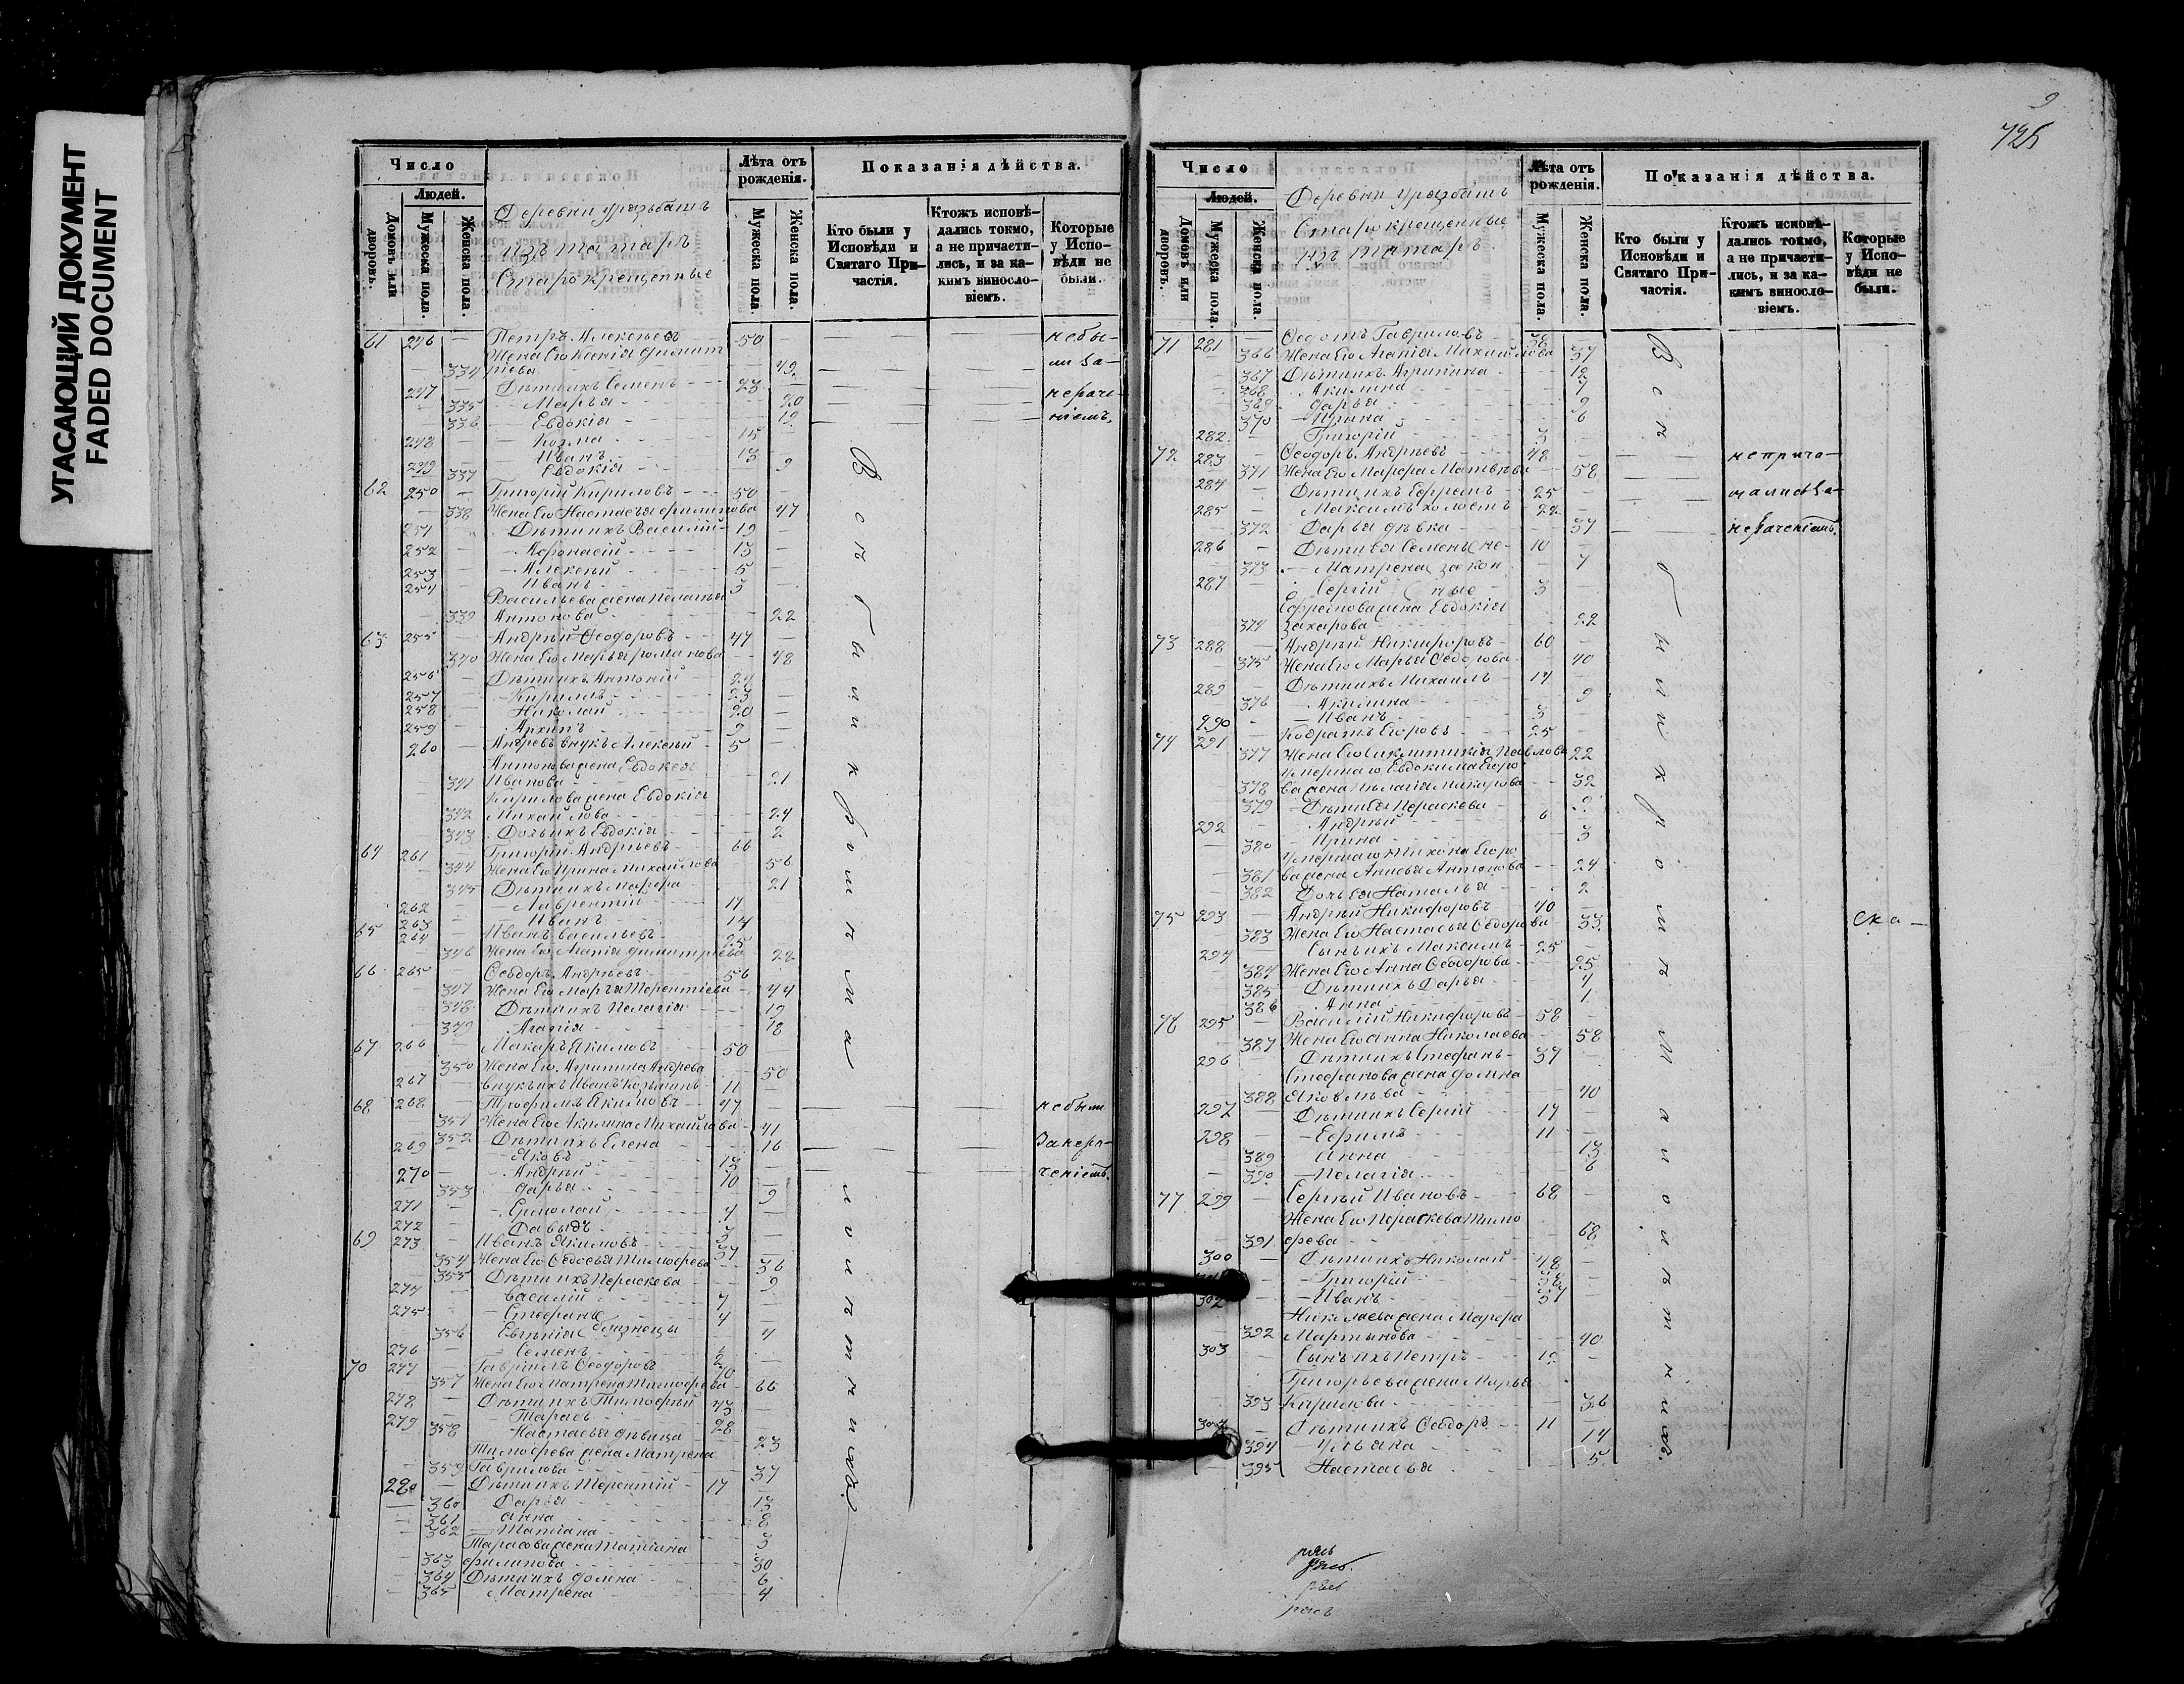 УГАСАЮЩИЙ ДОКУМЕНТ
FADED DOCUMENT
Число
Людей.
Домовъ или дворовъ.
Мужеска пола.
Женска пола.
Деревни Уразбашъ
изъ татаръ
Старокрещенные
Лѣта отъ рожденія.
Мужеска пола.
Женска пола.
Показанія дѣйства.
Кто были у Исповѣди и Святаго Причастія.
Ктожъ исповѣдались токмо, а не причастились, и за какимъ винословіемъ.
Которые у Исповѣди не были.
61 246 — Петръ Алексеевъ 50 — небы-
Жена Его Ксенія Димит
334 ріева 49 ли за-
247 Дѣти ихъ Семенъ 23 нераче-
335 Марья 20 ніемъ,
336 Евдокія 19
248 Козма 15
Иванъ 13
249 337 Евдокія 9
62 250 Григорій Кириловъ 50
338 Жена Его Настасья Филипова 47
251 Дѣти ихъ Василій 19
252 Афонасій 13
253 Алексѣй 5
254 Иванъ 3
Васильева жена Пелагья
339 Антонова 22
63 255 Андрѣй Феодоровъ 47
340 Жена Его Марья Романова 48
256 Дѣти ихъ Антоній 24
257 Кириллъ 23
258 Николай 20
259 Архипъ 9
260 Андреевъ внукъ Алексѣй 5
Антонова жена Евдокея
341 Иванова 21
Кирилова жена Евдокія
342 Михайлова 24
343 Дочь ихъ Евдокія 2
64 261 Григорій Андрѣевъ 66
344 Жена Его Ирина Михайлова 56
345 Дѣти ихъ Марфа 21
262 Лаврентій 17
263 Иванъ 14
65 264 Иванъ Васильевъ 25
346 Жена Его Агапія Димитріева 22
66 265 Феодоръ Андрѣевъ 56
347 Жена Его Марья Терентіева 44
348 Дѣти ихъ Пелагія 19
349 Агапія 18
67 266 Макаръ Якимовъ 50
350 Жена Его Агрипина Андреева 50
267 внукъ ихъ Иванъ Козьминъ 11
68 268 Трофимъ Якимовъ 47 небыли
351 Жена Его Акилина Михайлова 41
352 Дѣти ихъ Елена 16 Занера-
269 Яковъ 13
270 Андрѣй 10 ченіемъ.
353 Дарья 9
271 Ермолай 4
272 Давыдъ 3
69 273 Иванъ Якимовъ 37
354 Жена Его Федосья Тимофеева 36
355 Дѣти ихъ Пераскева 9
274 Василій 7
275 Стефанъ 4
356 Евгенія близнецы 4
276 Семенъ
70 277 Гавріилъ Феодоровъ 70
357 Жена Его Матрена Тимофеева 66
278 Дѣти ихъ Тимофѣй 43
279 Тарасъ 28
358 Настасья дѣвица 23
Тимофеева жена Матрена
359 Гаврилова 37
280 Дѣти ихъ Терентій 17
360 Дарья 13
361 Анна 8
362 Татіана 3
Тарасова жена Татіана
363 Филипова 30
364 Дѣти ихъ Домна 6
365 Матрена 4
Вси были кромѣ
Число
Людей.
Домовъ или дворовъ.
Мужеска пола.
Женска пола.
Деревни Уразбашъ
Старокрещенные
изъ татаръ
Лѣта отъ рожденія.
Мужеска пола.
Женска пола.
Показанія дѣйства.
Кто были у Исповѣди и Святаго Причастія.
Ктожъ исповѣдались токмо, а не причастились, и за какимъ винословіемъ.
Которые у Исповѣди не были.
71 281 Федотъ Гавриловъ 38
366 Жена Его Агапія Михайлова 37
367 Дѣти ихъ Агрипина 12
368 Акилина 7
369 Дарья 9
370 Ирина 6
282 Григорій 3
72 283 Феодоръ Андрѣевъ 48 неприча-
371 Жена Его Марфа Матвѣева 58
284 Дѣти ихъ Ефремъ 25
285 Максимъ холостъ 22
372 Дарья дѣвка 37 нераченіемъ.
286 Дѣти Ея Семенъ не- 10
373 Матрена закон 7
287 Сергій ные 3
Ефремова жена Евдокія
374 Захарова 22
73 288 Андрѣй Никифоровъ 60
375 Жена Его Марья Федорова 40
289 Дѣти ихъ Михаилъ 14
376 Акилина 9
290 Иванъ 3
74 291 Кодратъ Егоровъ 25
377 Жена Его Павлова 22
Умершаго Евдокима Егоро
378 ва жена Пелагія 32
379 Дѣти Ея Пераскева 9
292 Андрѣй 6
380 Ирина 3
Умершаго Тихона Егоро
381 ва жена Анисья Антонова 24
382 Дочь Ея Наталья 2
75 293 Андрѣй Никифоровъ 40 Ска-
383 Жена Его Настасья Федорова 33
294 Сынъ ихъ Максимъ 25
384 Жена Его Анна Феодорова 25
385 Дѣти ихъ Дарья 4
386 Анна 1
76 295 Василій Никифоровъ 58
387 Жена Его Анна Николаева 58
296 Дѣти ихъ Стефанъ 37
Стефанова жена Домна
388 Яковлева 40
297 Дѣти ихъ Сергій 17
298 Ефимъ 11
389 Анна 13
390 Пелагія 6
77 299 Сергѣй Ивановъ 68
Жена Его Пераскева Тимо
391 феева 68
300 Дѣти ихъ Николай 48
Григорій 38
302 Иванъ 37
Николаева жена Марфа
392 Мартынова 40
303 Сынъ ихъ Петръ 19
Григорьева жена Марья
393 Кирилова 36
304 Дѣти ихъ Феодоръ 11
394 Ульяна 14
395 Настасья 5